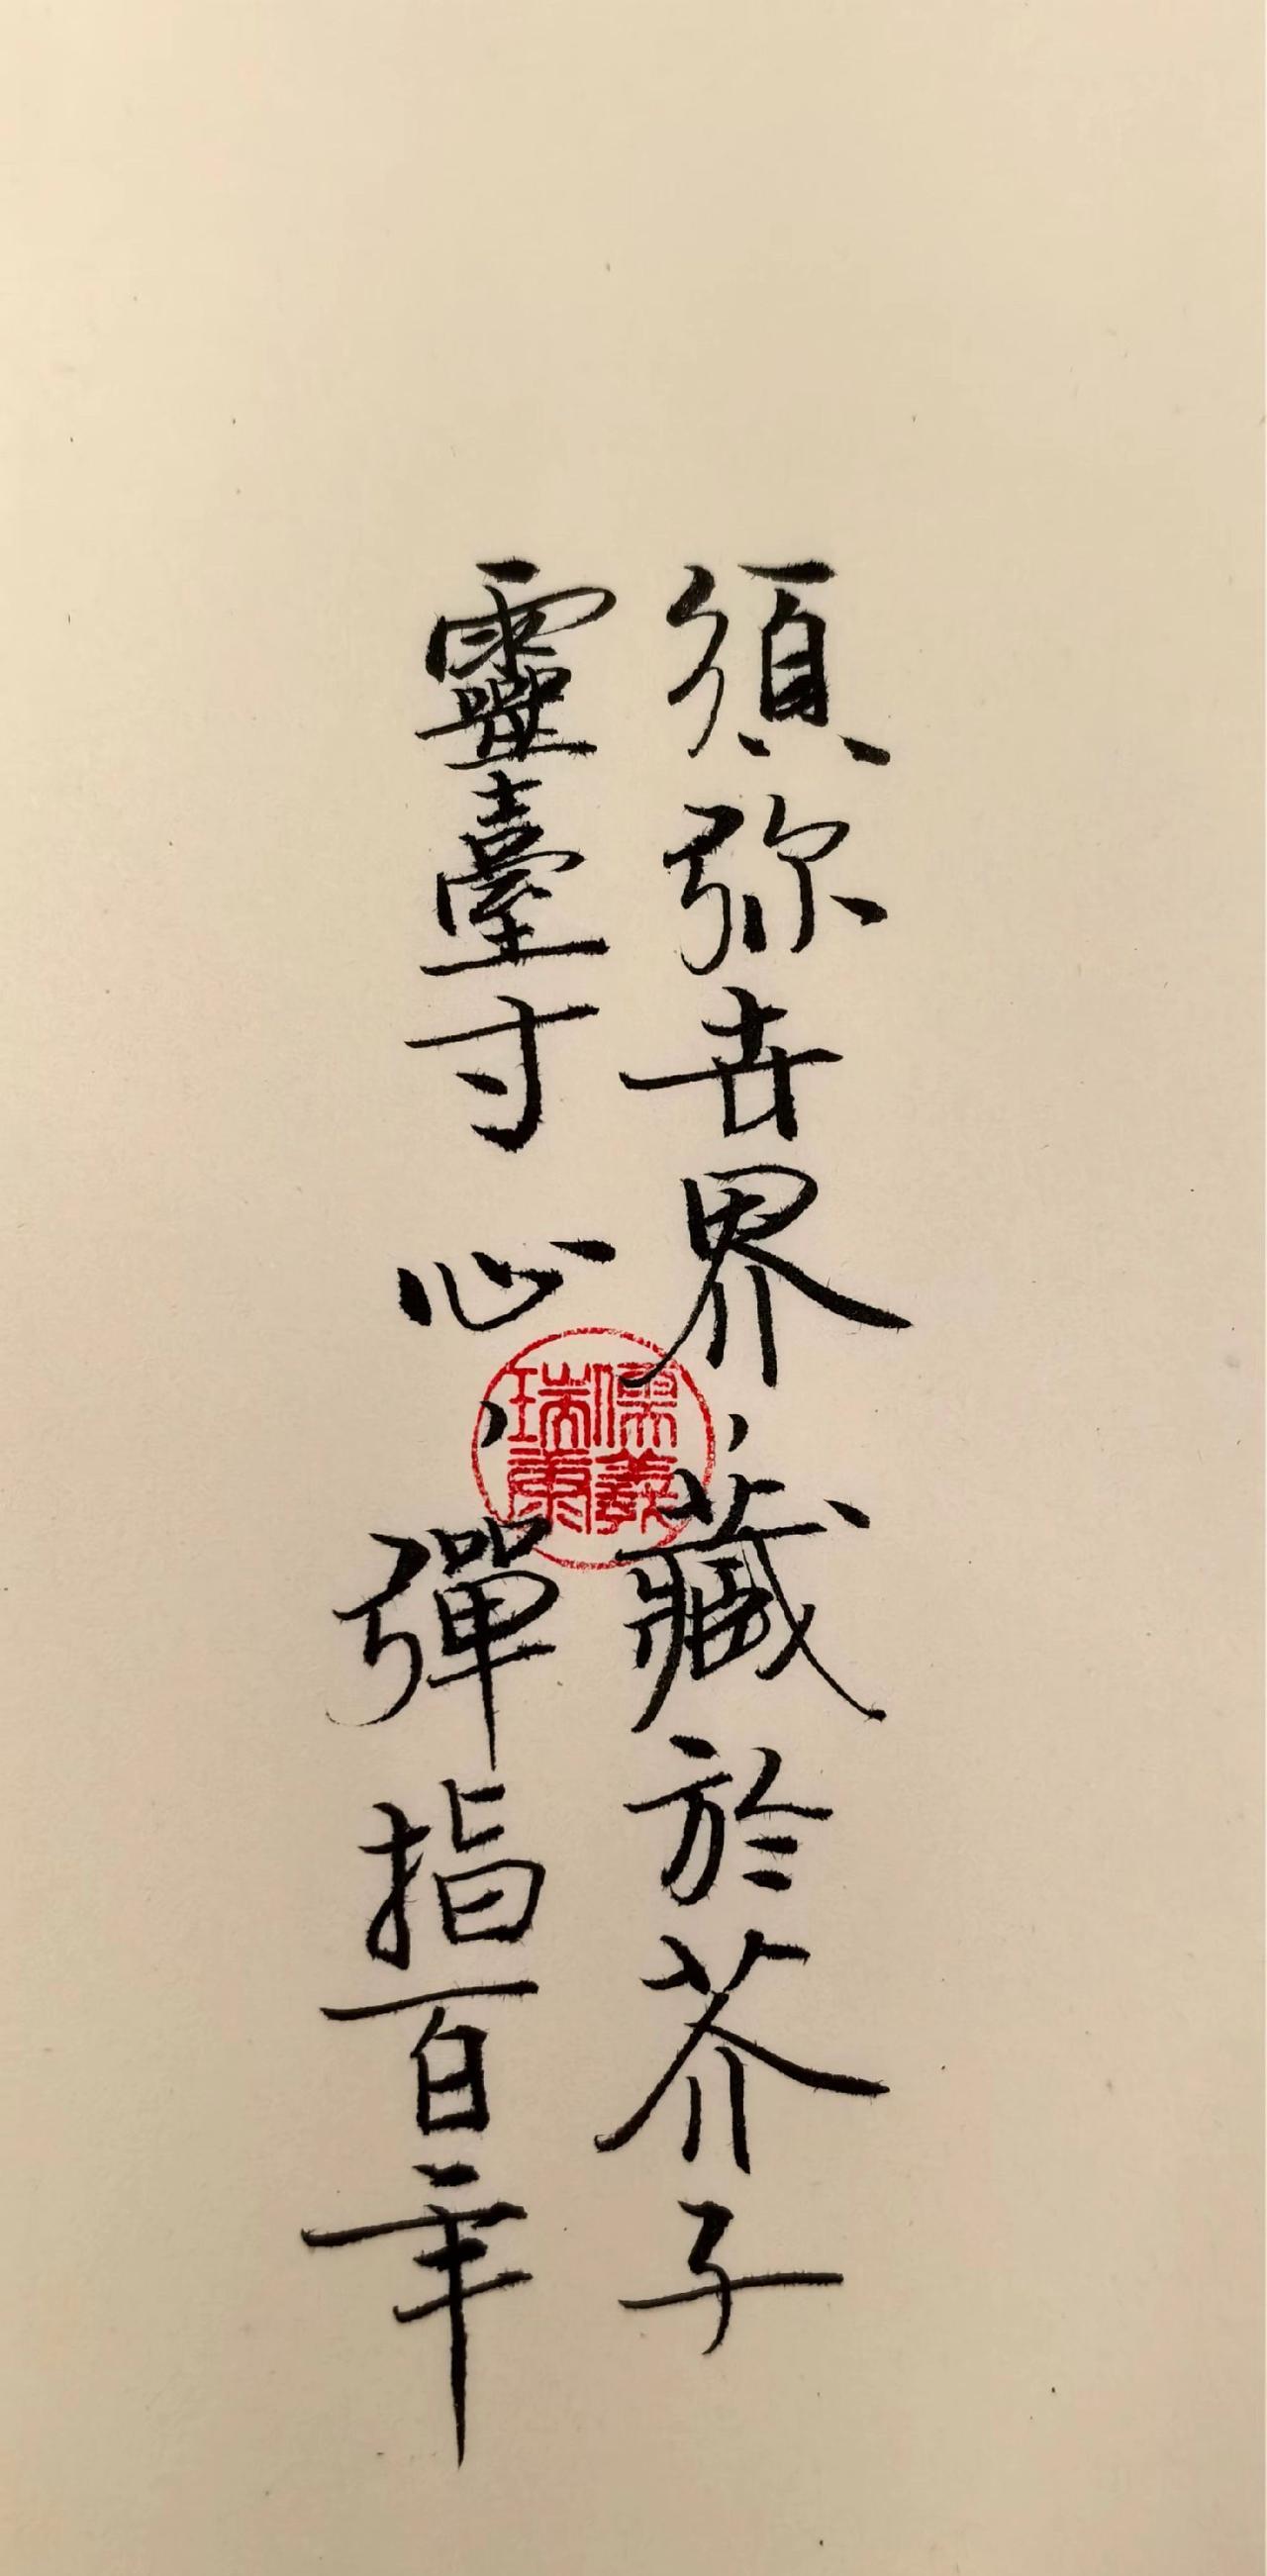 須弥世界，藏於芥子
靈臺寸心，彈指百年